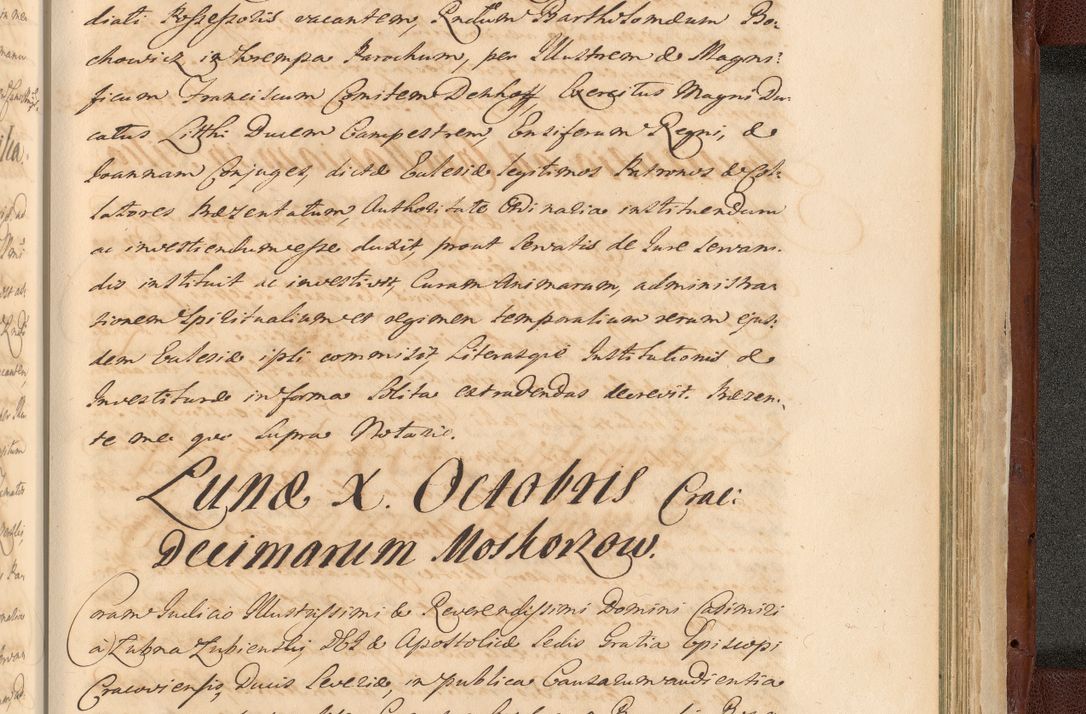 diati Possessoris vacantem, Rndum Bartholomæum Bo-
chowicz in Krempa Parochum, per Illustrem & Magni-
ficum Franciscum Comitem Denhoff Exercitus Magni Du-
catus Litthi Ducem Campestrem, Ensiferum Regni, &
Joannam Conjuges, dictæ Ecclesiæ legitimos Patronos & Col-
latores Præzentatum, Authoritate Ordinaria instituendum
ac investiendum esse duxit, prout servatis de Jure servan-
dis instituit ac investivit, Curam Animarum, administra-
tionem Spiritualium et regimen temporalium rerum ejus-
dem Ecclesiæ ipsi commisit, Literasque Institutionis &
Investituræ in forma solita extradendas decrevit. Præzen-
te me quo supra Notario.
Lunæ X. Octobris Crac:
Decimarum Moskorzow.
Coram Judicio Illustrissimi & Reverendissimi Domini Casimiri
à Lubna Lubienski DEI & Apostolicæ Sedis Gratia Episcopi
Cracoviensis, Ducis Severiæ, in publica Causarum audientia